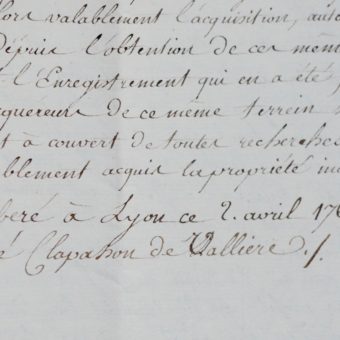 lors valablement l'acquisition, aut
Dépuis l'obtention de ces mêm
t l'Enregistrement qui en a été,
cquéreurs de ce même terrein
t à couvert de toutes recherches
blement acquis la propriété in
béré à Lyon ce 2. avril 17
é Clapasson de Vallière ./.